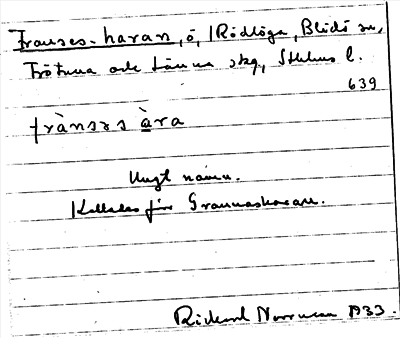 Franses-haran, ö, (Rödlöga, Blidö sn,
Frötuna och Länna skg, Sthlms l.
639
frànsəs àra
Ungt namn.
Kallades förr Grannasharan.
Rickard Norrman 1933.